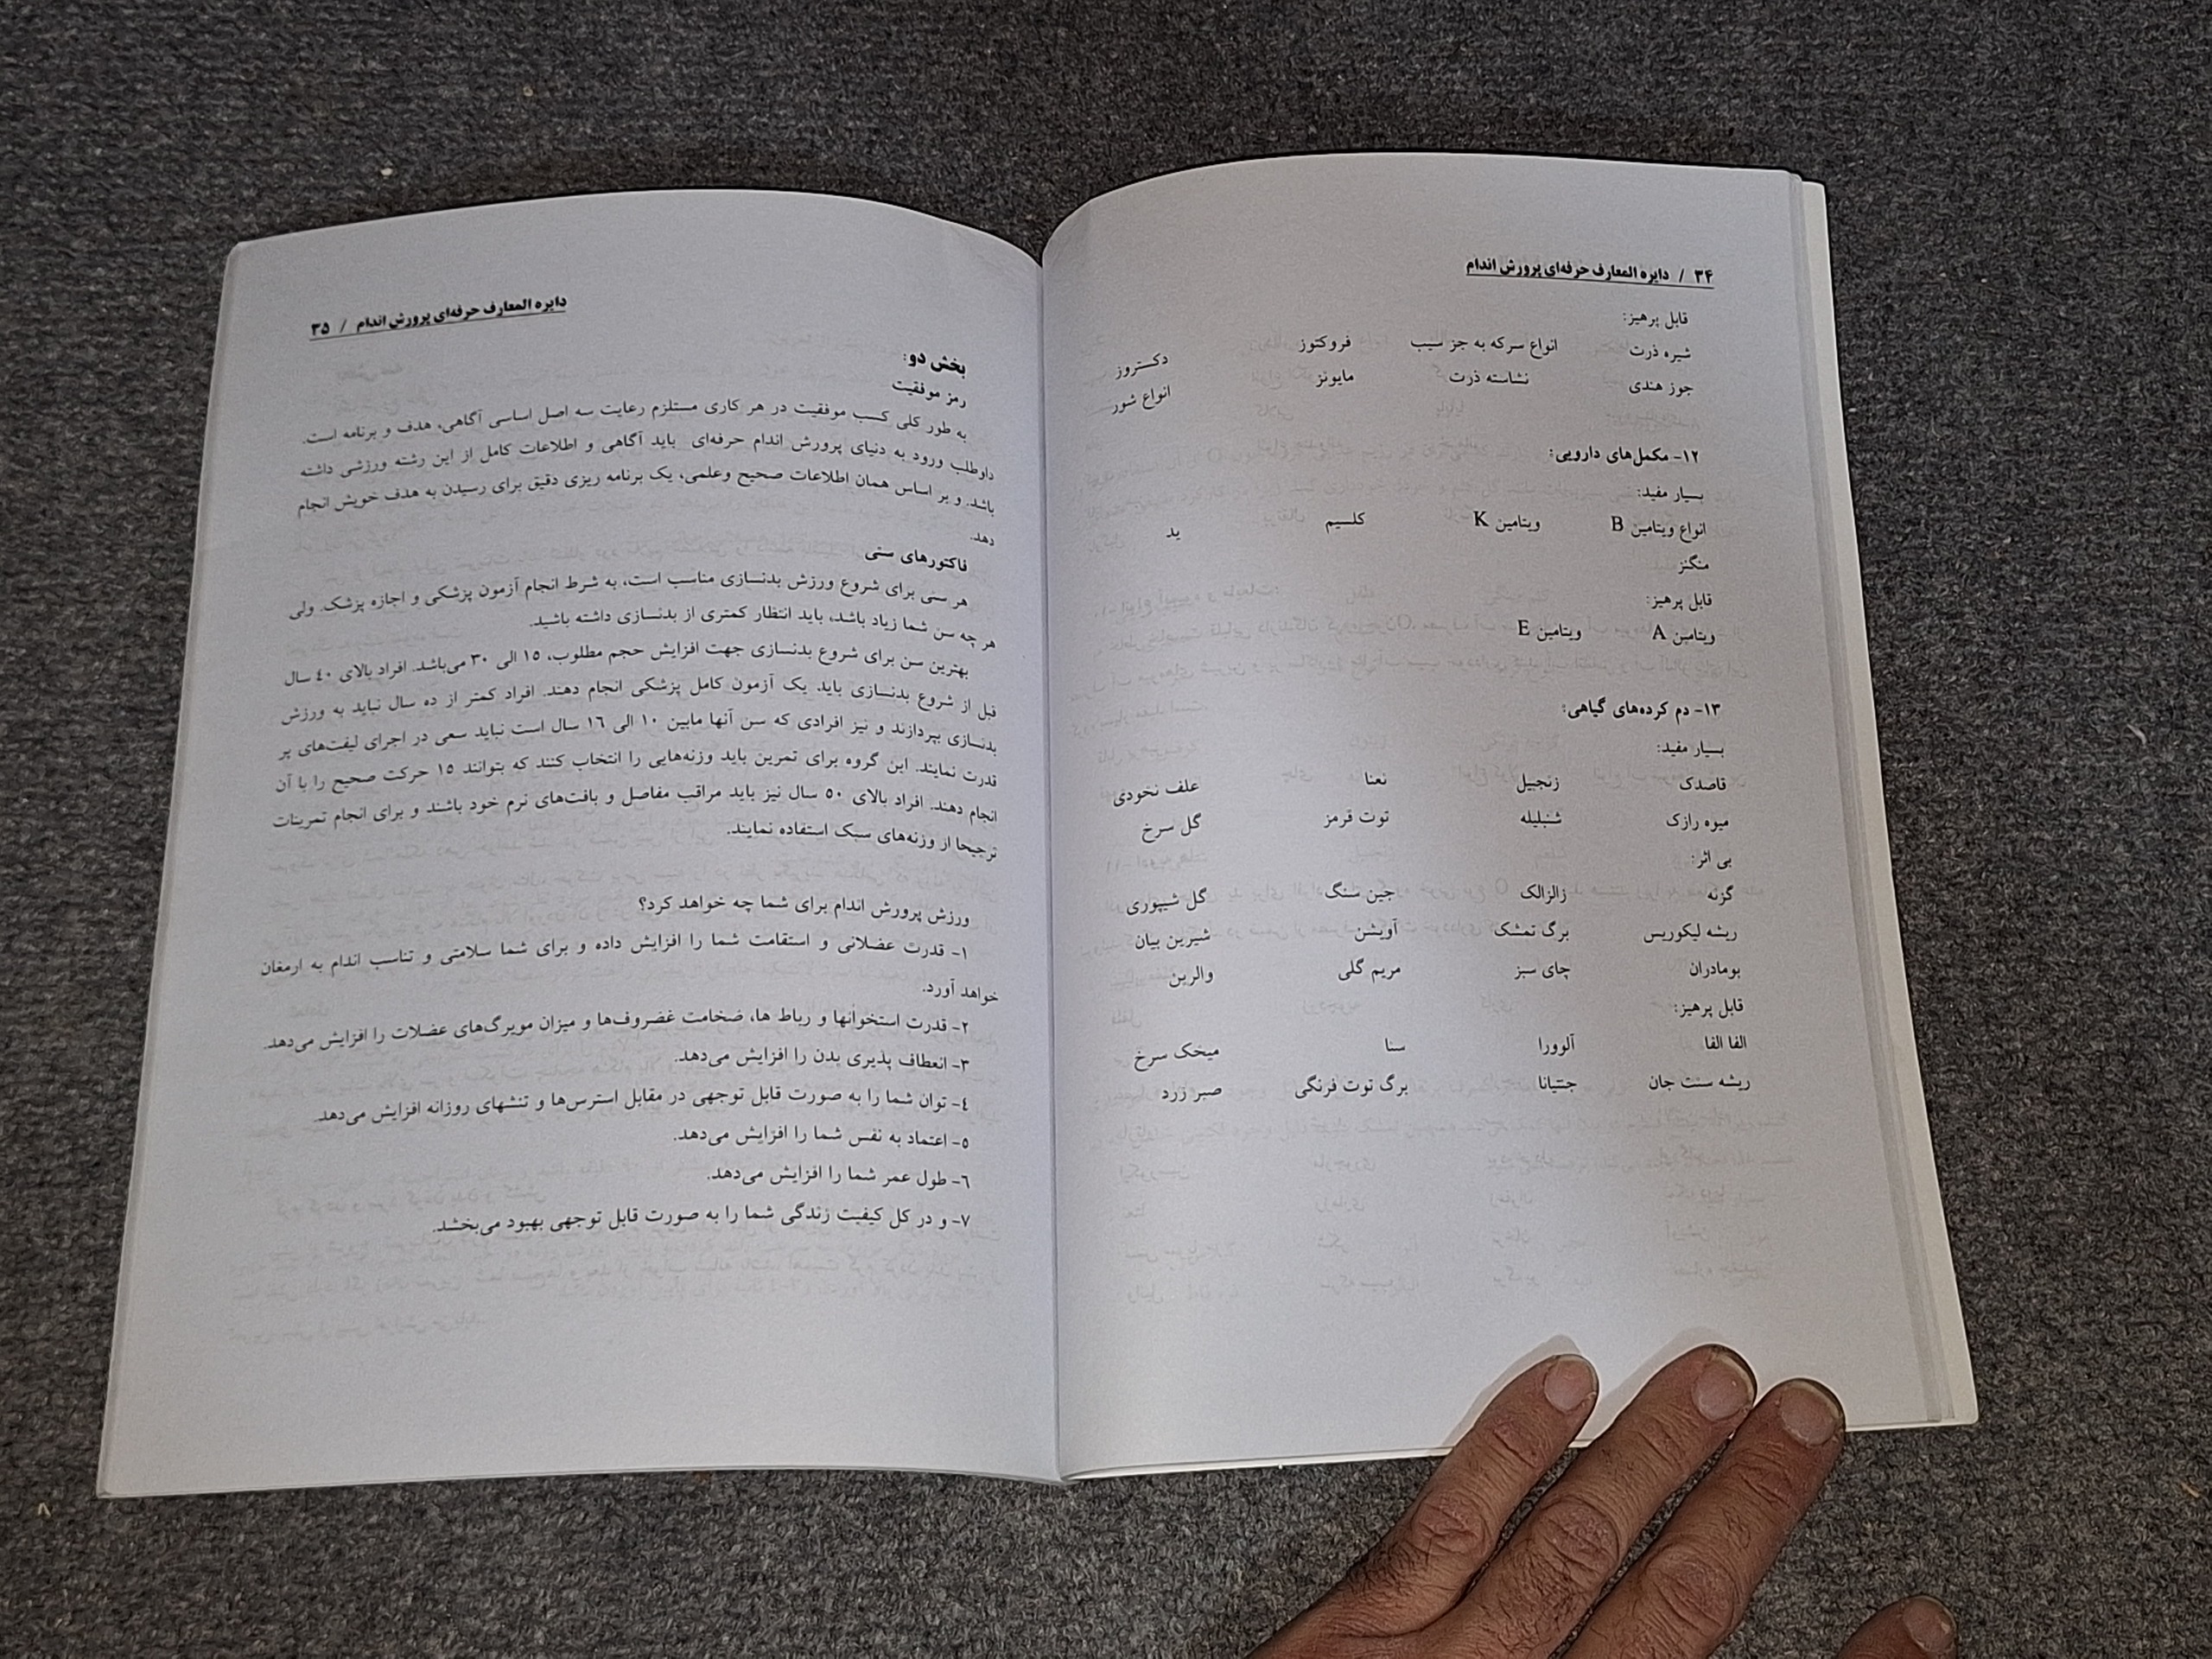 ۳۴ / دایره المعارف حرفه‌ای پرورش اندام
قابل پرهیز:
شیره ذرت انواع سرکه به جز سیب فروکتوز دکستروز
جوز هندی نشاسته ذرت مایونز انواع شور
۱۲- مکمل‌های دارویی:
بسیار مفید:
انواع ویتامین B ویتامین K کلسیم ید
منگنز
قابل پرهیز:
ویتامین A ویتامین E
۱۳- دم کرده‌های گیاهی:
بسیار مفید:
قاصدک زنجبیل نعنا علف نخودی
میوه رازک شنبلیله توت قرمز گل سرخ
بی اثر:
گزنه زالزالک جین سنگ گل شیپوری
ریشه لیکوریس برگ تمشک آویشن شیرین بیان
بومادران چای سبز مریم گلی والرین
قابل پرهیز:
الفا الفا آلوورا سنا میخک سرخ
ریشه سنت جان جنتیانا برگ توت فرنگی صبر زرد
دایره المعارف حرفه‌ای پرورش اندام / ۳۵
بخش دو:
رمز موفقیت
به طور کلی کسب موفقیت در هر کاری مستلزم رعایت سه اصل اساسی آگاهی، هدف و برنامه است.
داوطلب ورود به دنیای پرورش اندام حرفه‌ای باید آگاهی و اطلاعات کامل از این رشته ورزشی داشته
باشد. و بر اساس همان اطلاعات صحیح وعلمی، یک برنامه ریزی دقیق برای رسیدن به هدف خویش انجام
دهد.
فاکتورهای سنی
هر سنی برای شروع ورزش بدنسازی مناسب است، به شرط انجام آزمون پزشکی و اجازه پزشک. ولی
هر چه سن شما زیاد باشد، باید انتظار کمتری از بدنسازی داشته باشید.
بهترین سن برای شروع بدنسازی جهت افزایش حجم مطلوب، ۱۵ الی ۳۰ می‌باشد. افراد بالای ۴۰ سال
قبل از شروع بدنسازی باید یک آزمون کامل پزشکی انجام دهند. افراد کمتر از ده سال نباید به ورزش
بدنسازی بپردازند و نیز افرادی که سن آنها مابین ۱۰ الی ۱۶ سال است نباید سعی در اجرای لیفت‌های پر
قدرت نمایند. این گروه برای تمرین باید وزنه‌هایی را انتخاب کنند که بتوانند ۱۵ حرکت صحیح را با آن
انجام دهند. افراد بالای ۵۰ سال نیز باید مراقب مفاصل و بافت‌های نرم خود باشند و برای انجام تمرینات
ترجیحا از وزنه‌های سبک استفاده نمایند.
ورزش پرورش اندام برای شما چه خواهد کرد؟
۱- قدرت عضلانی و استقامت شما را افزایش داده و برای شما سلامتی و تناسب اندام به ارمغان
خواهد آورد.
۲- قدرت استخوانها و رباط ها، ضخامت غضروف‌ها و میزان مویرگ‌های عضلات را افزایش می‌دهد.
۳- انعطاف پذیری بدن را افزایش می‌دهد.
۴- توان شما را به صورت قابل توجهی در مقابل استرس‌ها و تنشهای روزانه افزایش می‌دهد.
۵- اعتماد به نفس شما را افزایش می‌دهد.
۶- طول عمر شما را افزایش می‌دهد.
۷- و در کل کیفیت زندگی شما را به صورت قابل توجهی بهبود می‌بخشد.